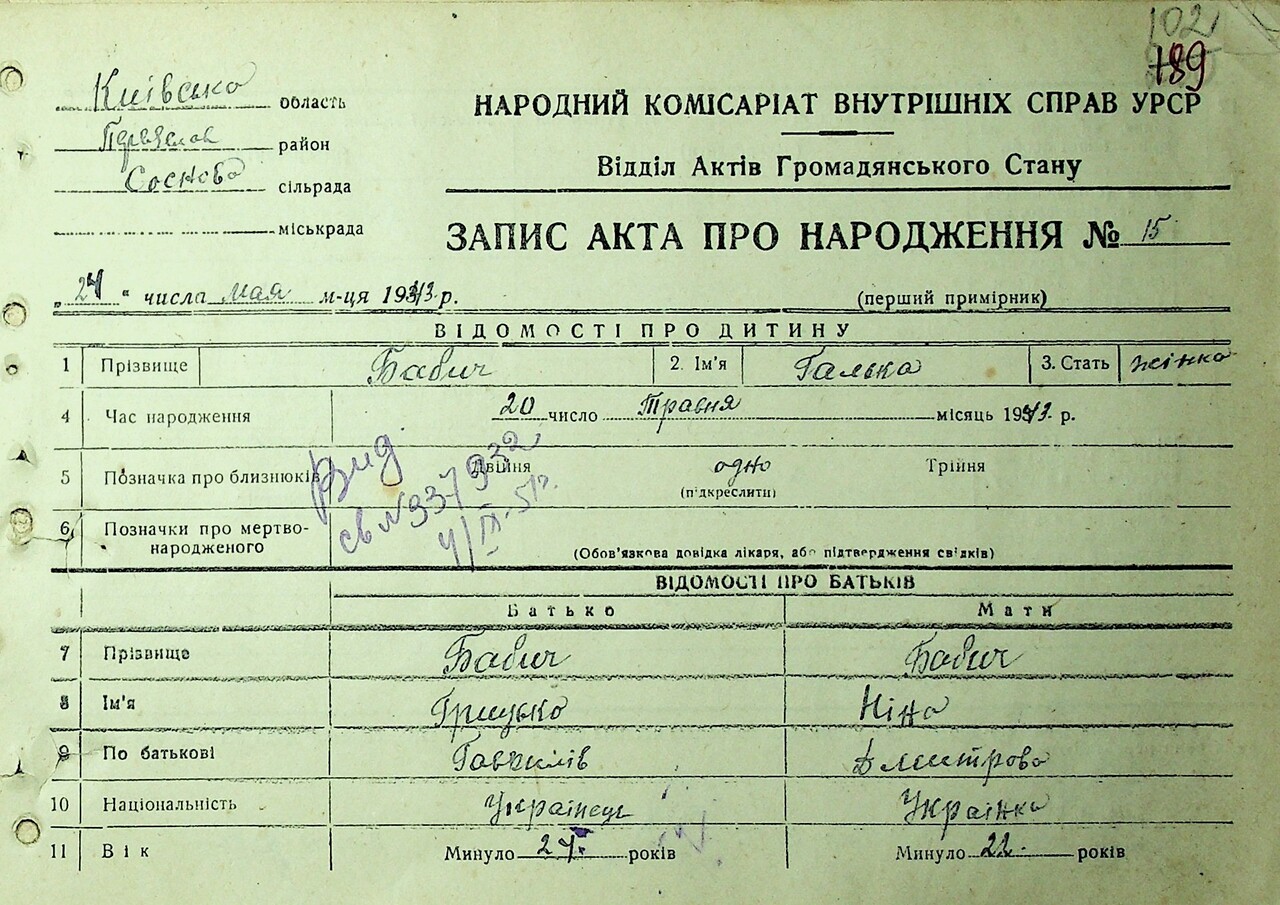 102
189
Київська область
НАРОДНИЙ КОМІСАРІАТ ВНУТРІШНІХ СПРАВ УРСР
район
Відділ Актів Громадянського Стану
Соснова сільрада
міськрада
ЗАПИС АКТА ПРО НАРОДЖЕННЯ № 15
„24" числа мая м-ця 1943 р.
(перший примірник)
ВІДОМОСТІ ПРО ДИТИНУ
1 Прізвище Бабич 2. Ім'я Галька 3. Стать жінка
4 Час народження 20 число Травня місяць 1943 р.
5 Позначка про близнюків Двійня одно Трійня
(підкреслити)
Вид
св № 337932
4/IX-51р.
6 Позначки про мертво-
народженого
(Обов'язкова довідка лікаря, або підтвердження свідків)
ВІДОМОСТІ ПРО БАТЬКІВ
Батько Мати
7 Прізвище Бабич Бабич
8 Ім'я Грицько Ніна
9 По батькові Гаврилів Дмитрова
10 Національність Українець Українка
11 Вік Минуло 24. років Минуло 22. років